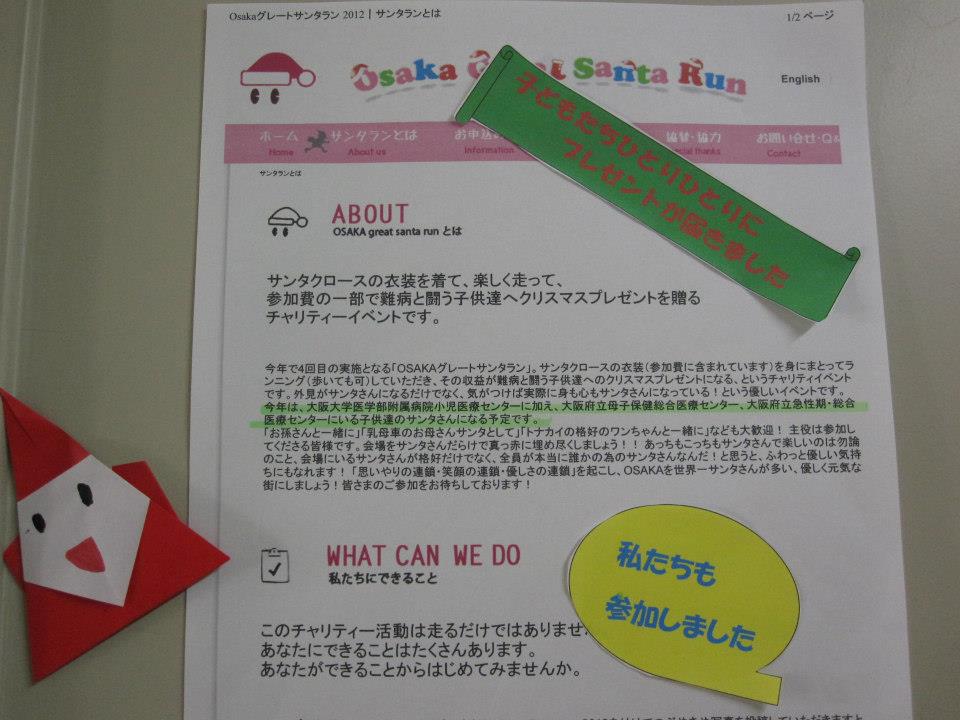 Osakaグレートサンタラン 2012 | サンタランとは
1/2 ページ
Osaka Santa Run
English
ホーム サンタランとは お申込 協賛・協力 お問い合せ・Q&
Home About us Information thanks Contact
サンタランとは
子どもたちひとりひとりに
プレゼントが届きました
ABOUT
OSAKA great santa run とは
サンタクロースの衣装を着て、楽しく走って、
参加費の一部で難病と闘う子供達へクリスマスプレゼントを贈る
チャリティーイベントです。
今年で4回目の実施となる「OSAKAグレートサンタラン」。サンタクロースの衣装(参加費に含まれています)を身にまとってラ
ンニング(歩いても可)していただき、その収益が難病と闘う子供達へのクリスマスプレゼントになる、というチャリティイベント
です。外見がサンタさんになるだけでなく、気がつけば実際に身も心もサンタさんになっている!という優しいイベントです。
今年は、大阪大学医学部附属病院小児医療センターに加え、大阪府立母子保健総合医療センター、大阪府立急性期・総合
医療センターにいる子供達のサンタさんになる予定です。
「お孫さんと一緒に」「乳母車のお母さんサンタとして」「トナカイの格好のワンちゃんと一緒に」なども大歓迎! 主役は参加し
てくださる皆様です。会場をサンタさんだらけで真っ赤に埋め尽くしましょう!! あっちもこっちもサンタさんで楽しいのは勿論
のこと、会場にいるサンタさんが格好だけでなく、全員が本当に誰かの為のサンタさんなんだ!と思うと、ふわっと優しい気持
ちにもなれます!「思いやりの連鎖・笑顔の連鎖・優しさの連鎖」を起こし、OSAKAを世界一サンタさんが多い、優しく元気な
街にしましょう!皆さまのご参加をお待ちしております!
WHAT CAN WE DO
私たちにできること
私たちも
参加しました
このチャリティー活動は走るだけではありませ
あなたにできることはたくさんあります。
あなたができることからはじめてみませんか。